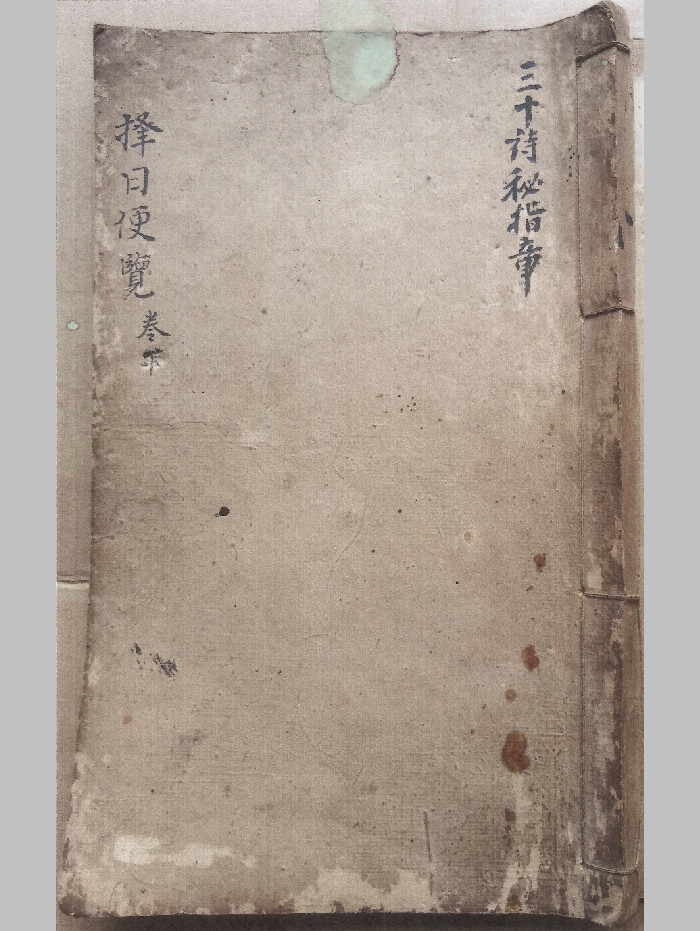 三十诗秘指章
择日便覽卷